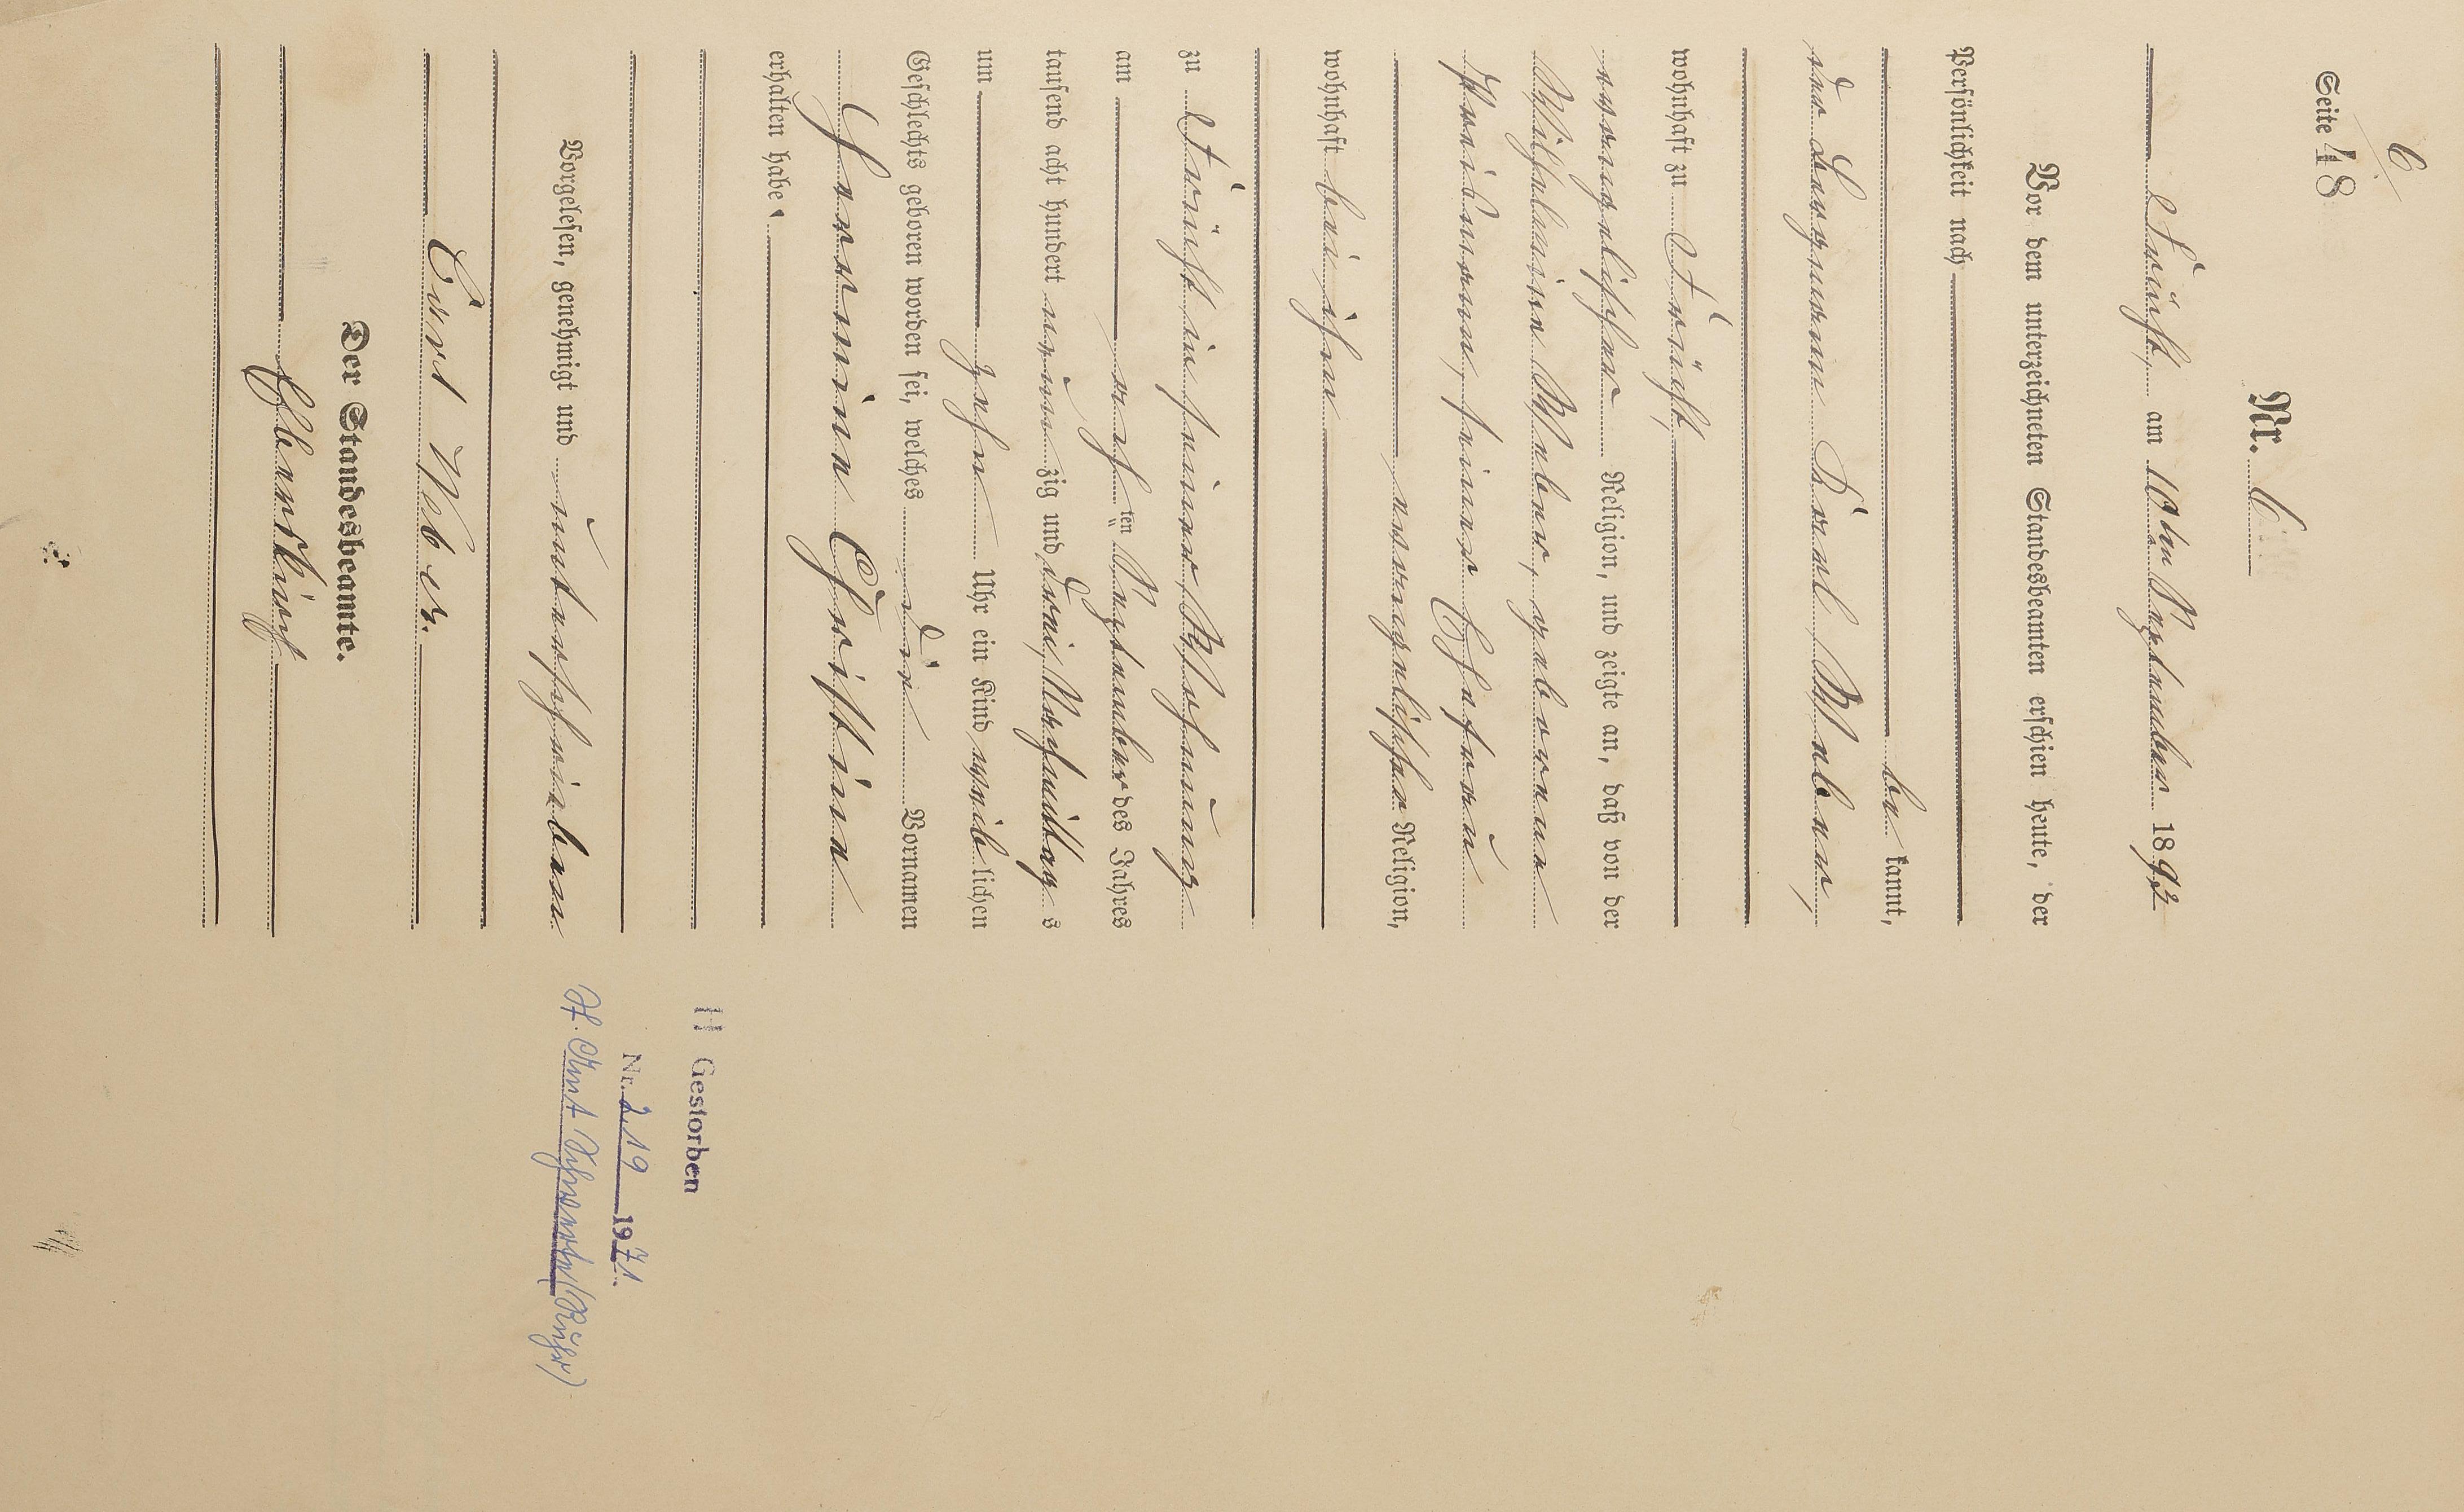 6
Seite 48
Nr. 6
Strüth, am 10ten September 1893
Vor dem unterzeichneten Standesbeamten erschien heute, der
Persönlichkeit nach
be kannt,
der Bergmann Karl Weber,
wohnhaft zu Strüth,
evangelischer Religion, und zeigte an, daß von der
Wilhelmine Weber, geborenen
seiner Ehefrau
evangelischer Religion,
wohnhaft bei ihm
zu Strüth in seiner Wohnung
am acht ten September des Jahres
tausend acht hundert neun zig und drei, Nachmittag s
um zehn Uhr ein Kind weib lichen
Geschlechts geboren worden sei, welches die Vornamen
Hermine Christine
erhalten habe.
Vorgelesen, genehmigt und unterschrieben
Carl Weber.
Der Standesbeamte.
H Gestorben
Nr. 219 1971.
St. Amt Schwerte (Ruhr)